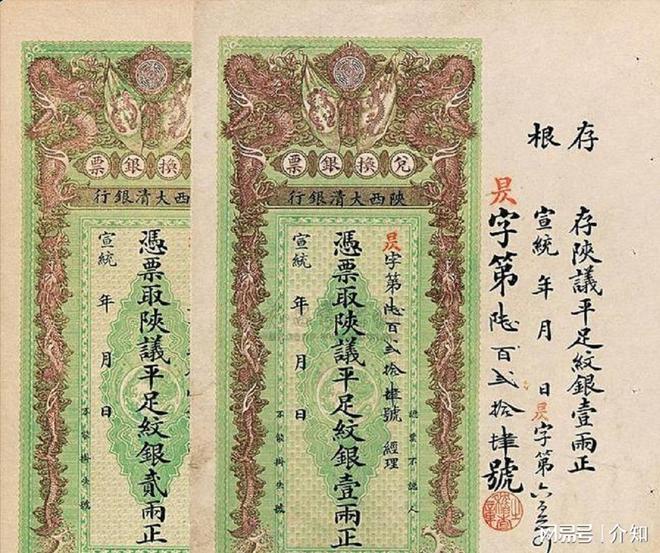 存根
存陝議平足紋銀壹兩正
宣統 年 月 日
字第陸百弍拾肆號
兌換銀票
陝西大清銀行
字第陸百弍拾肆號 經理
憑票取陝議平足紋銀壹兩正
宣統 年 月 日
換銀票
陝西大清銀行
憑票取陝議平足紋銀貳兩正
宣統 年 月 日
网易号 | 介知